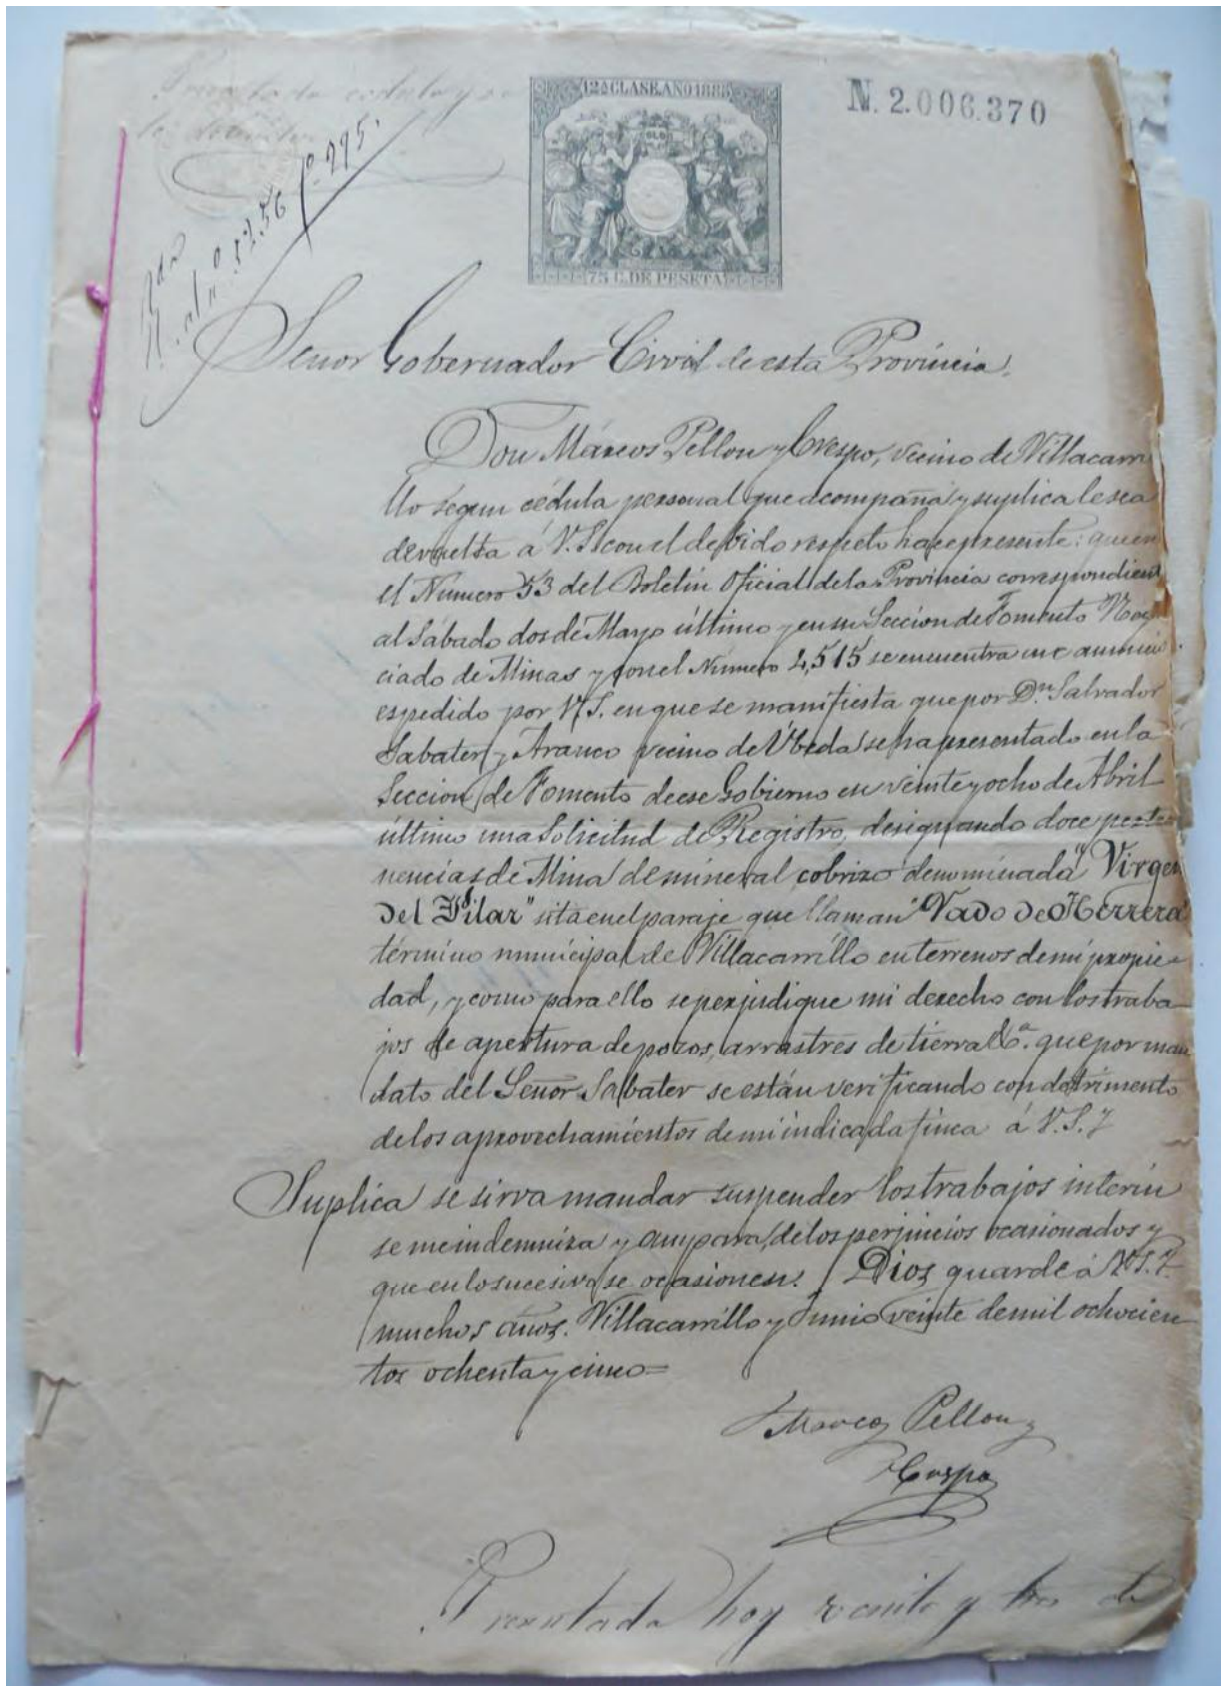 Presentada cedula y se
le devuelve
12ª CLASE. AÑO 1885
N. 2.006.370
75 C. DE PESETA
al nº 3256 fº 295.
Señor Gobernador Civil de esta Provincia.
Don Márcos Pellon y Crespo, vecino de Villacarri
llo segun cédula personal que acompaña y suplica le sea
devuelta á V.S. con el debido respeto hace presente: que en
el Número 53 del Boletin Oficial de la Provincia correspondient
al Sábado dos de Mayo último y en su Sección de Fomento Nego
ciado de Minas y con el Número 2,515 se encuentra un anuncio
espedido por V.S. en que se manifiesta que por Dn Salvador
Sabater y Aranco vecino de Úbeda se ha presentado en la
Seccion de Fomento de ese Gobierno en veinte y ocho de Abril
último una Solicitud de Registro, designando doce perte
nencias de Mina de mineral cobrizo denominada "Virgen
del Pilar" sita en el paraje que llaman "Vado de Herrera
término municipal de Villacarrillo en terrenos de mi propie-
dad, y como para ello se perjudique mi derecho con los traba-
jos de apertura de pozos, arrastres de tierra &ª. que por man
dato del Señor Sabater se están verificando con detrimento
de los aprovechamientos de mi indicada finca á V.S.I
Suplica se sirva mandar suspender los trabajos interin
se me indemniza y ampara, de los perjuicios ocasionados y
que en lo sucesivo se ocasionen. Dios guarde á V.S.I.
muchos años. Villacarrillo y Junio veinte de mil ochocien-
tos ochenta y cinco=
Marcos Pellon y
Crespo
Presentada hoy veinte y tres de